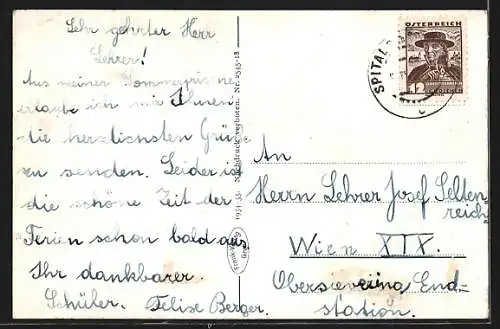 Sehr geehrter Herr
Lehrer!
Aus meiner Sommerfrische
erlaube ich mir Ihnen
die herzlichsten Grüße
zu senden. Leider ist
die schöne Zeit der
Ferien schon bald aus.
Ihr dankbarer
Schüler. Felise Berger.
1934-35 Nachdruck verboten. Nr. 2545-18
ÖSTERREICH
12
SPITAL
An
Herrn Lehrer Josef Selten
reich
Wien XIX.
Obersievering End-
station.